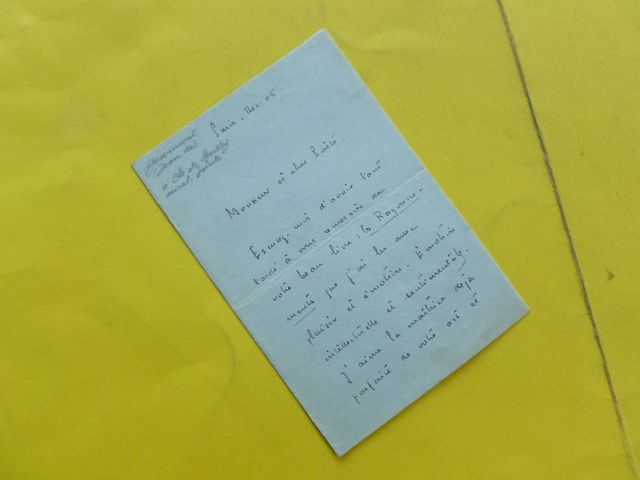 Gourmont
(Jean de)
à Ch de
Paris, Déc. 06
Monsieur et cher Poète.
Excusez-moi d'avoir tant
tardé à vous remercier de
votre beau livre : le Rayonne-
ments que j'ai lu avec
plaisir et émotion. Emotion
intellectuelle et sentimentale.
J'aime la maîtrise déjà
parfaite de votre art et